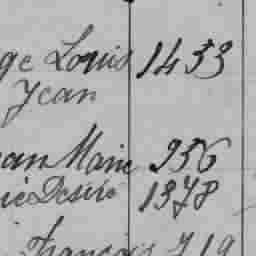 ge Louis 1433
Jean
ean Marie 936
ie Desiré 1378
François 719